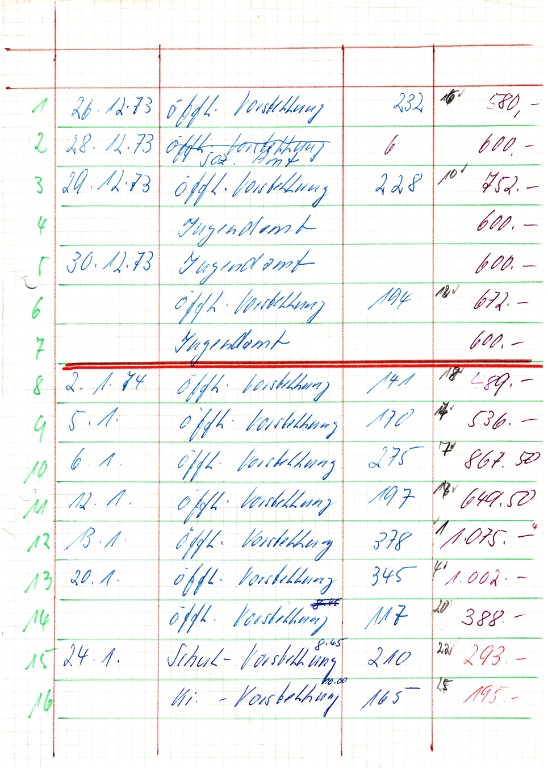 1 26.12.73 öffh. Vorstellung 232 580,-
2 28.12.73 öffh. Vorstellung 6 600.-
Soz. Amt
3 29.12.73 öffh. Vorstellung 228 10 752.-
4 Jugendamt 600.-
5 30.12.73 Jugendamt 600.-
6 öffh. Vorstellung 194 672.-
7 Jugendamt 600.-
8 2.1.74 öffh. Vorstellung 141 18 489.-
9 5.1. öffh. Vorstellung 170 536.-
10 6.1. öffh. Vorstellung 275 7 867.50
11 12.1. öffh. Vorstellung 197 649.50
12 13.1. öffh. Vorstellung 378 1 1.075.-
13 20.1. öffh. Vorstellung 345 1.002.-
14 öffh. Vorstellung 117 20 388.-
8.45
15 24.1. Schul-Vorstellung 210 293.-
10.00
16 Ki.-Vorstellung 165 195.-